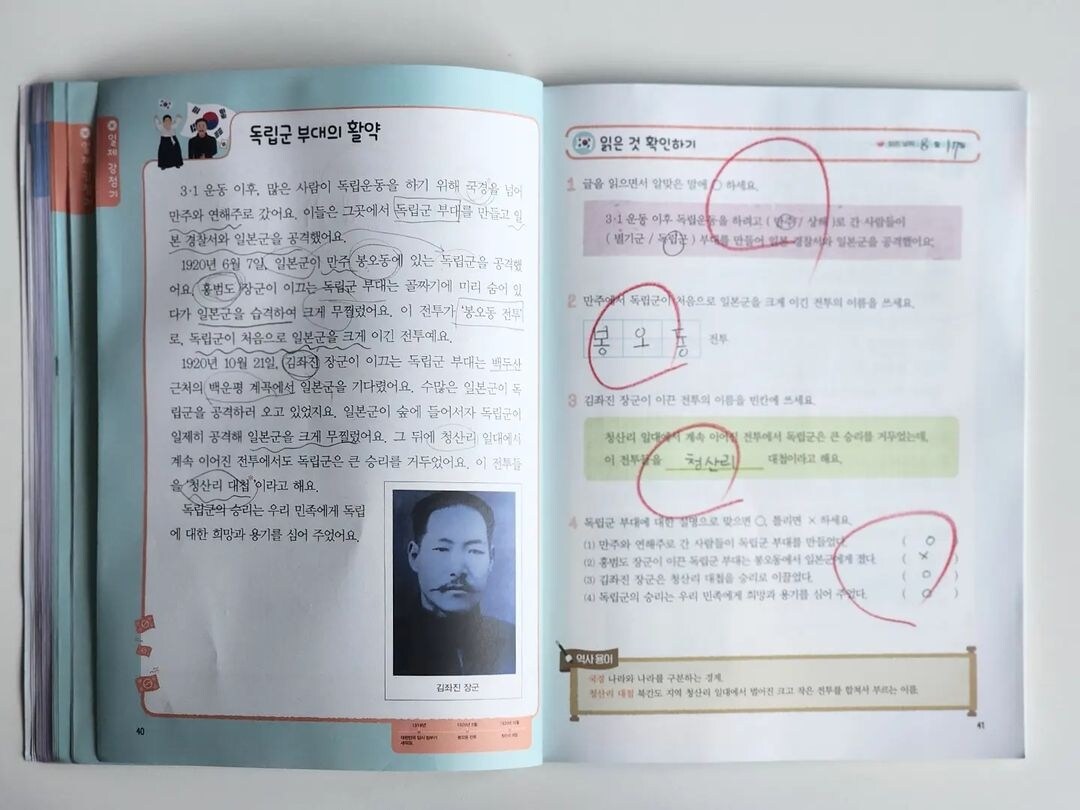 일제 강점기
독립군 부대의 활약
3·1 운동 이후, 많은 사람이 독립운동을 하기 위해 국경을 넘어
만주와 연해주로 갔어요. 이들은 그곳에서 독립군 부대를 만들고 일
본 경찰서와 일본군을 공격했어요.
1920년 6월 7일, 일본군이 만주 봉오동에 있는 독립군을 공격했
어요. 홍범도 장군이 이끄는 독립군 부대는 골짜기에 미리 숨어 있
다가 일본군을 습격하여 크게 무찔렀어요. 이 전투가 '봉오동 전투'
로, 독립군이 처음으로 일본군을 크게 이긴 전투예요.
1920년 10월 21일, 김좌진 장군이 이끄는 독립군 부대는 백두산
근처의 백운평 계곡에서 일본군을 기다렸어요. 수많은 일본군이 독
립군을 공격하러 오고 있었지요. 일본군이 숲에 들어서자 독립군이
일제히 공격해 일본군을 크게 무찔렀어요. 그 뒤에 청산리 일대에서
계속 이어진 전투에서도 독립군은 큰 승리를 거두었어요. 이 전투들
을 '청산리 대첩'이라고 해요.
독립군의 승리는 우리 민족에게 독립
에 대한 희망과 용기를 심어 주었어요.
김좌진 장군
40
읽은 것 확인하기
8월 17일
1 글을 읽으면서 알맞은 말에 ○ 하세요.
3·1 운동 이후 독립운동을 하려고 ( 만주 / 상해 )로 간 사람들이
( 별기군 / 독립군 ) 부대를 만들어 일본 경찰서와 일본군을 공격했어요.
2 만주에서 독립군이 처음으로 일본군을 크게 이긴 전투의 이름을 쓰세요.
봉 오 동 전투
3 김좌진 장군이 이끈 전투의 이름을 빈칸에 쓰세요.
청산리 일대에서 계속 이어진 전투에서 독립군은 큰 승리를 거두었는데,
이 전투들을 청산리 대첩이라고 해요.
4 독립군 부대에 대한 설명으로 맞으면 ○, 틀리면 × 하세요.
(1) 만주와 연해주로 간 사람들이 독립군 부대를 만들었다. ( ○ )
(2) 홍범도 장군이 이끈 독립군 부대는 봉오동에서 일본군에게 졌다. ( × )
(3) 김좌진 장군은 청산리 대첩을 승리로 이끌었다. ( ○ )
(4) 독립군의 승리는 우리 민족에게 희망과 용기를 심어 주었다. ( ○ )
역사 용어
국경 나라와 나라를 구분하는 경계.
청산리 대첩 북간도 지역 청산리 일대에서 벌어진 크고 작은 전투를 합쳐서 부르는 이름.
41